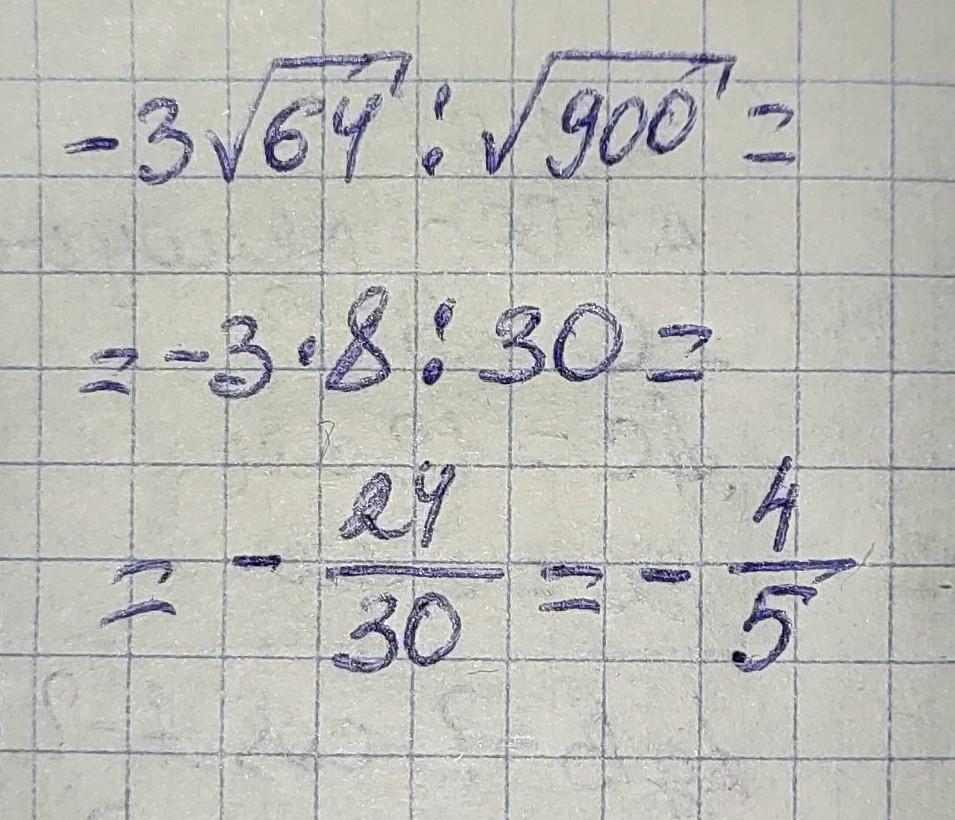 -3√64 : √900 =
= -3·8 : 30 =
= - 24/30 = - 4/5